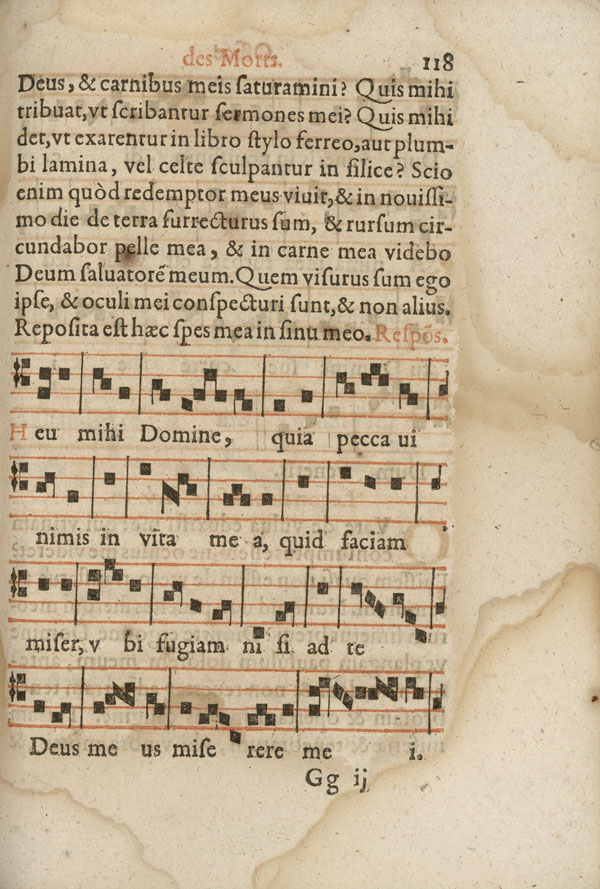 des Morts. 118
Deus, & carnibus meis saturamini? Quis mihi
tribuat, vt scribantur sermones mei? Quis mihi
det, vt exarentur in libro stylo ferreo, aut plum-
bi lamina, vel celte sculpantur in silice? Scio
enim quòd redemptor meus viuit, & in nouissi-
mo die de terra surrecturus sum, & rursum cir-
cundabor pelle mea, & in carne mea videbo
Deum saluatorẽ meum. Quem visurus sum ego
ipse, & oculi mei conspecturi sunt, & non alius.
Reposita est hæc spes mea in sinu meo. Respõs.
Heu mihi Domine, quia pecca ui
nimis in vita me a, quid faciam
miser, v bi fugiam ni si ad te
Deus me us mise rere me i.
Gg ij